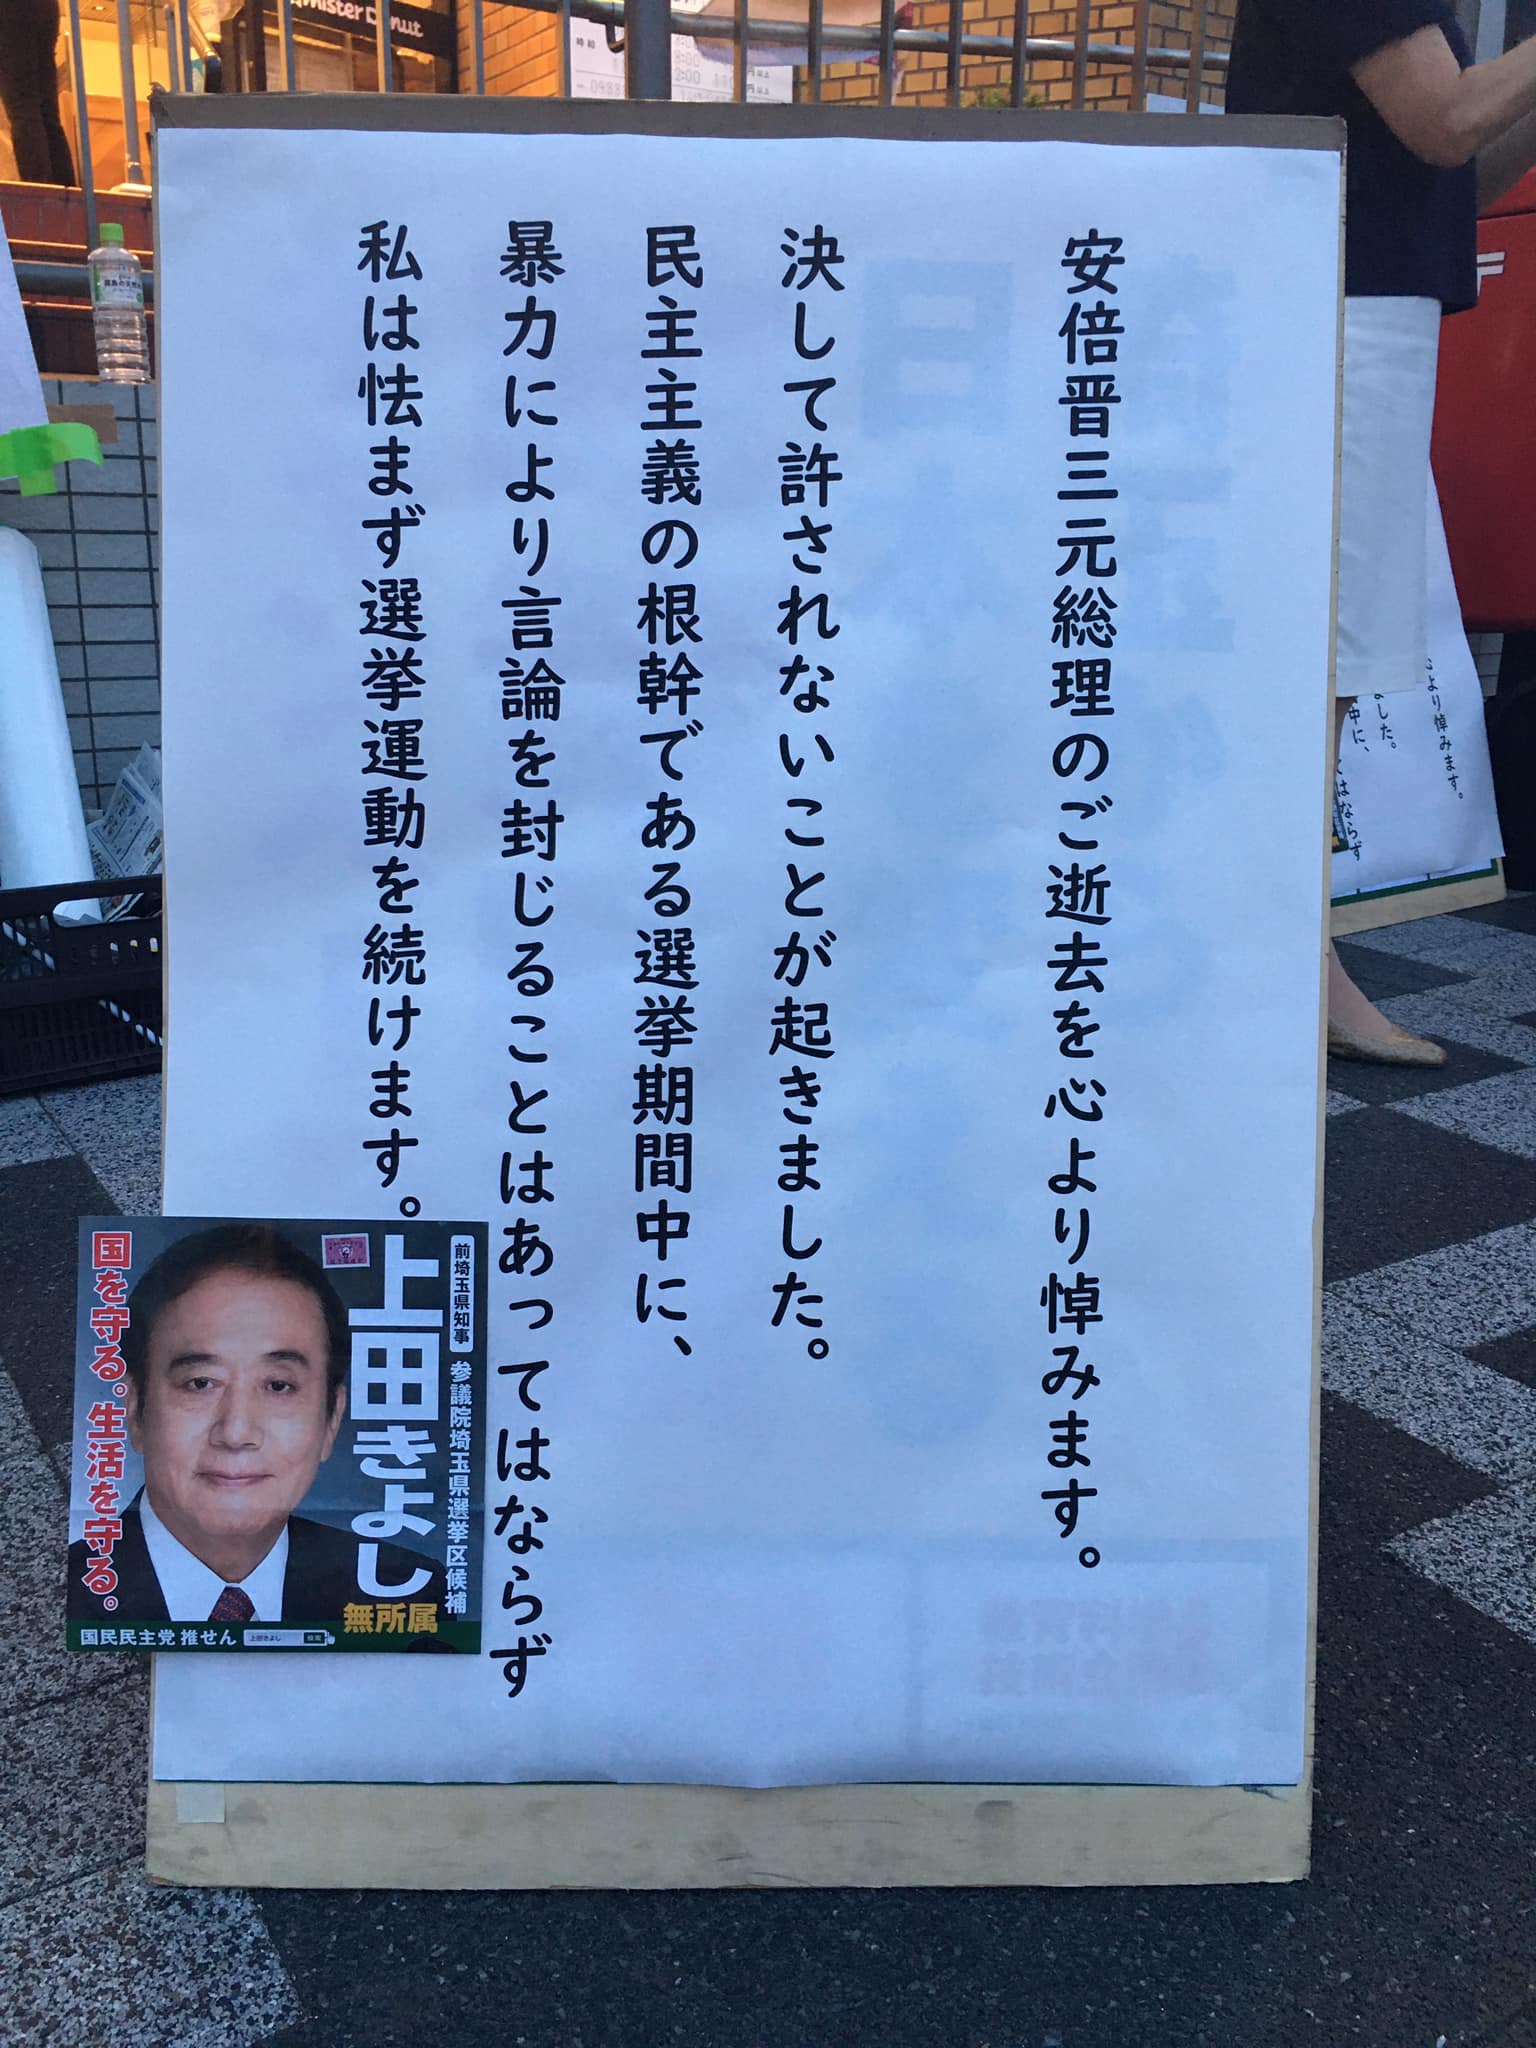 安倍晋三元総理のご逝去を心より悼みます。
決して許されないことが起きました。
民主主義の根幹である選挙期間中に、
暴力により言論を封じることはあってはならず
私は怯まず選挙運動を続けます。
前埼玉県知事 参議院埼玉県選挙区候補
上田きよし
無所属
国を守る。生活を守る。
国民民主党 推せん
上田きよし 検索
mister Donut
時給
心より悼みます。
ました。
中に、
てはならず